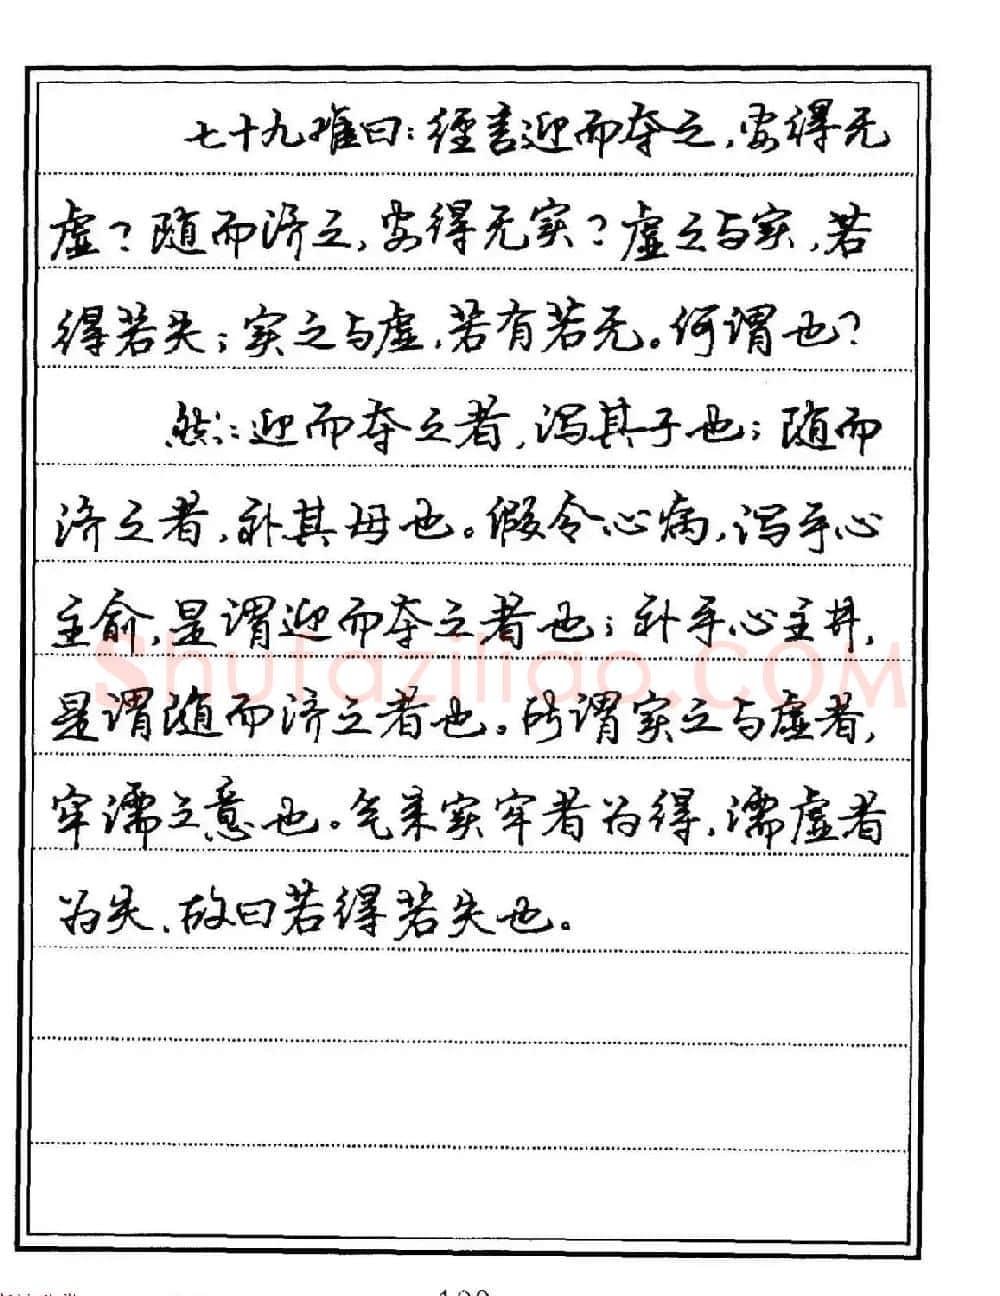 七十九难曰：经言迎而夺之，安得无
虚？随而济之，安得无实？虚之与实，若
得若失；实之与虚，若有若无。何谓也？
然：迎而夺之者，泻其子也；随而
济之者，补其母也。假令心病，泻手心
主俞，是谓迎而夺之者也；补手心主井，
是谓随而济之者也。所谓实之与虚者，
牢濡之意也。气来实牢者为得，濡虚者
为失，故曰若得若失也。
Shufaziliao.COM